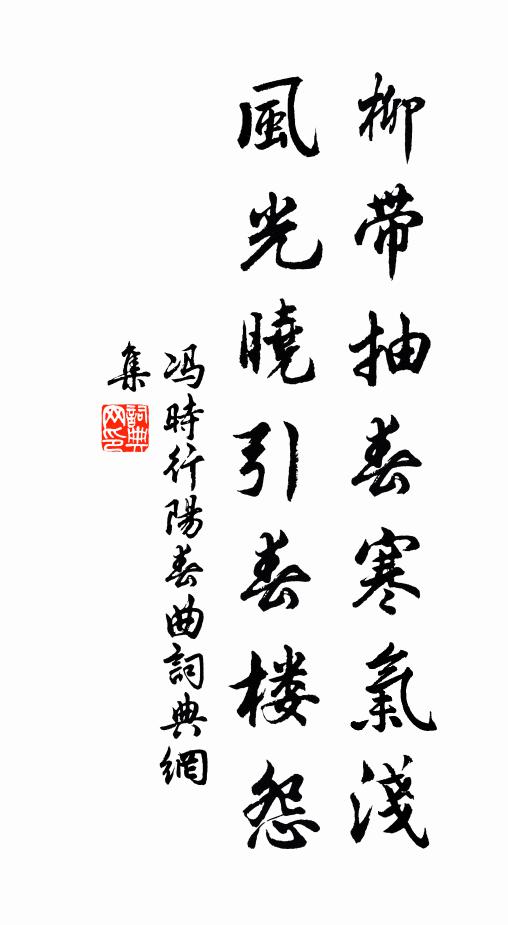 柳带抽春寒氣淺
風光曉引春楼怨
冯時行陽春曲詞典網
集
詞典
网印